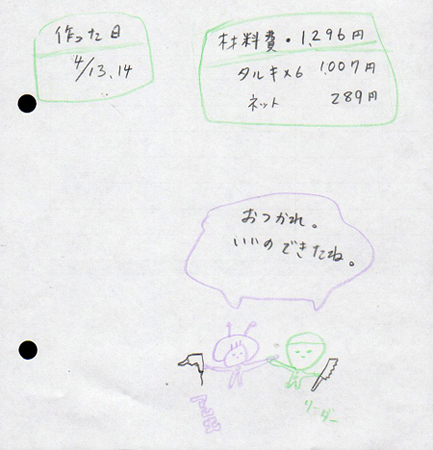 作った日
4/13.14
材料費・1,296円
タルキ×6 1,007円
ネット 289円
おつかれ。
いいのできたね。
リーダー